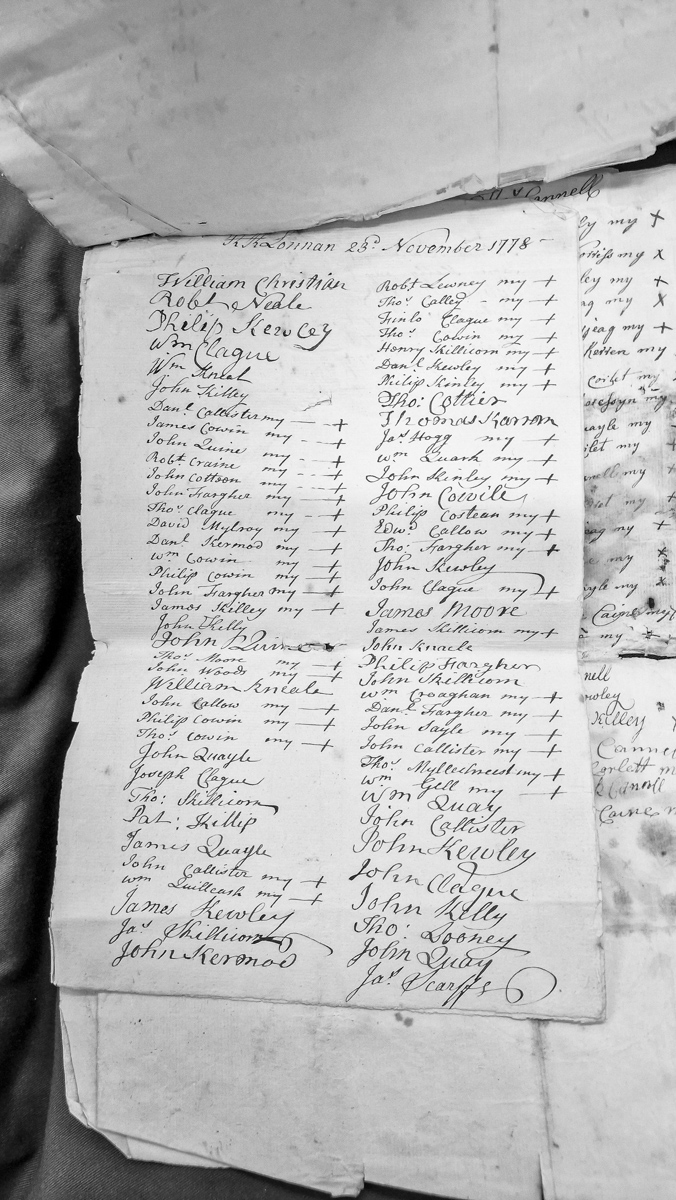 Cannell
KK Lonnan 23d November 1778
William Christian
Robt Neale
Philip Kewley
Wm Clague
Wm Kneal
John Killey
Danl Callister my +
James Cowin my +
John Quine my +
Robt Craine my +
John Cottson my +
John Fargher my +
Thos Clague my +
David Mylroy my +
Danl Kermod my +
Wm Cowin my +
Philip Cowin my +
John Fargher my +
James Skilley my +
John Kelly
John Quirk
Thos Moore my +
John Woods my +
William Kneale
John Callow my +
Philip Cowin my +
Thos Cowin my +
John Quayle
Joseph Clague
Tho: Skillicorn
Pat: Killip
James Quayle
John Callister my +
Wm Quilleash my +
James Kewley
Jas Skillicorn
John Kermod
Robt Lewney my +
Thos Calley my +
Finlo Clague my +
Thos Cowin my +
Henry Skillicorn my +
Danl Kewley my +
Philip Kinley my +
Tho: Cottier
Thomas Karran
Jas Hogg my +
Wm Quark my +
John Kinley my +
John Cowill
Philip Costean my +
Edwd Callow my +
Tho: Fargher my +
John Kewley
John Clague my +
James Moore
James Skillicorn my +
John Kneale
Philip Fargher
John Skillicorn
Wm Croaghan my +
Danl Fargher my +
John Sayle my +
John Callister my +
Thos Mylechreest my +
Wm Gell my +
Wm Quay
John Callister
John Kewley
John Clague
John Kelly
Tho: Looney
John Quay
Jas Scarffe
my +
my x
my +
my x
my +
my
my
my
my +
my x
my +
my +
my +
my x
my x
Caine my
my x
Killey
Corlett
Cannell
Caine